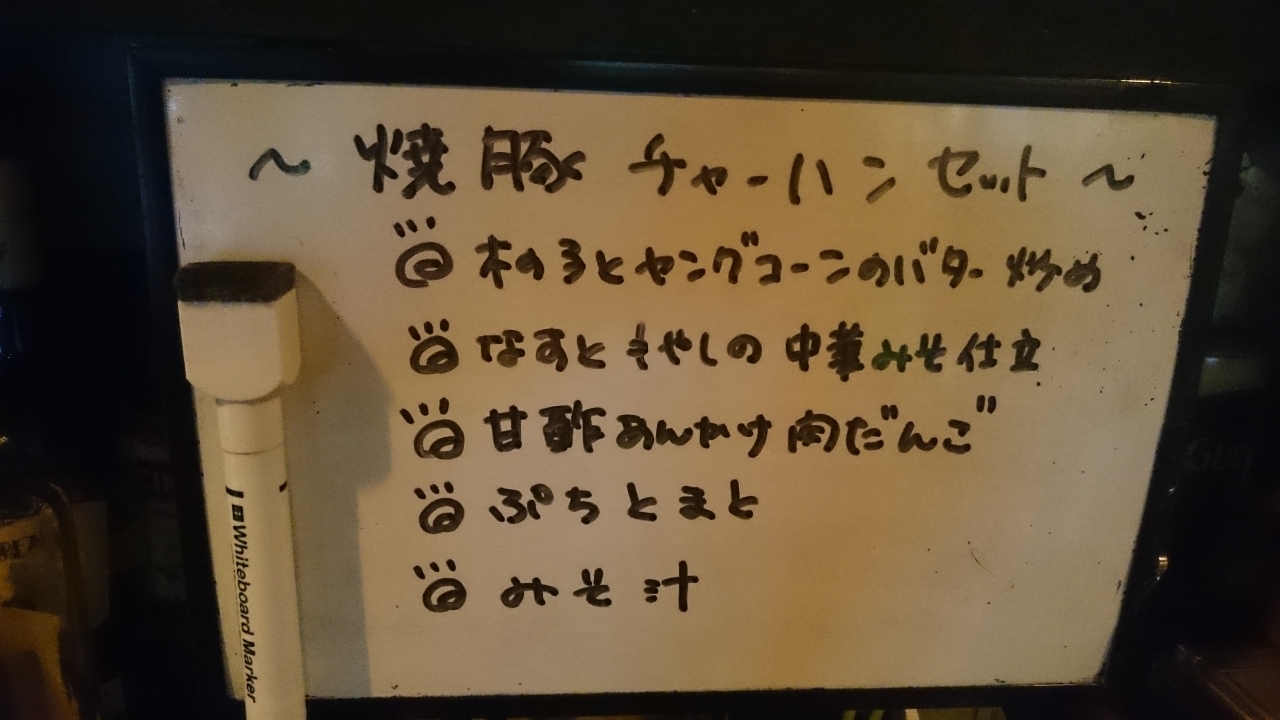 ～焼豚チャーハンセット～
木の子とヤングコーンのバター炒め
なすともやしの中華みそ仕立
甘酢あんかけ肉だんご
ぷちとまと
みそ汁
Whiteboard Marker